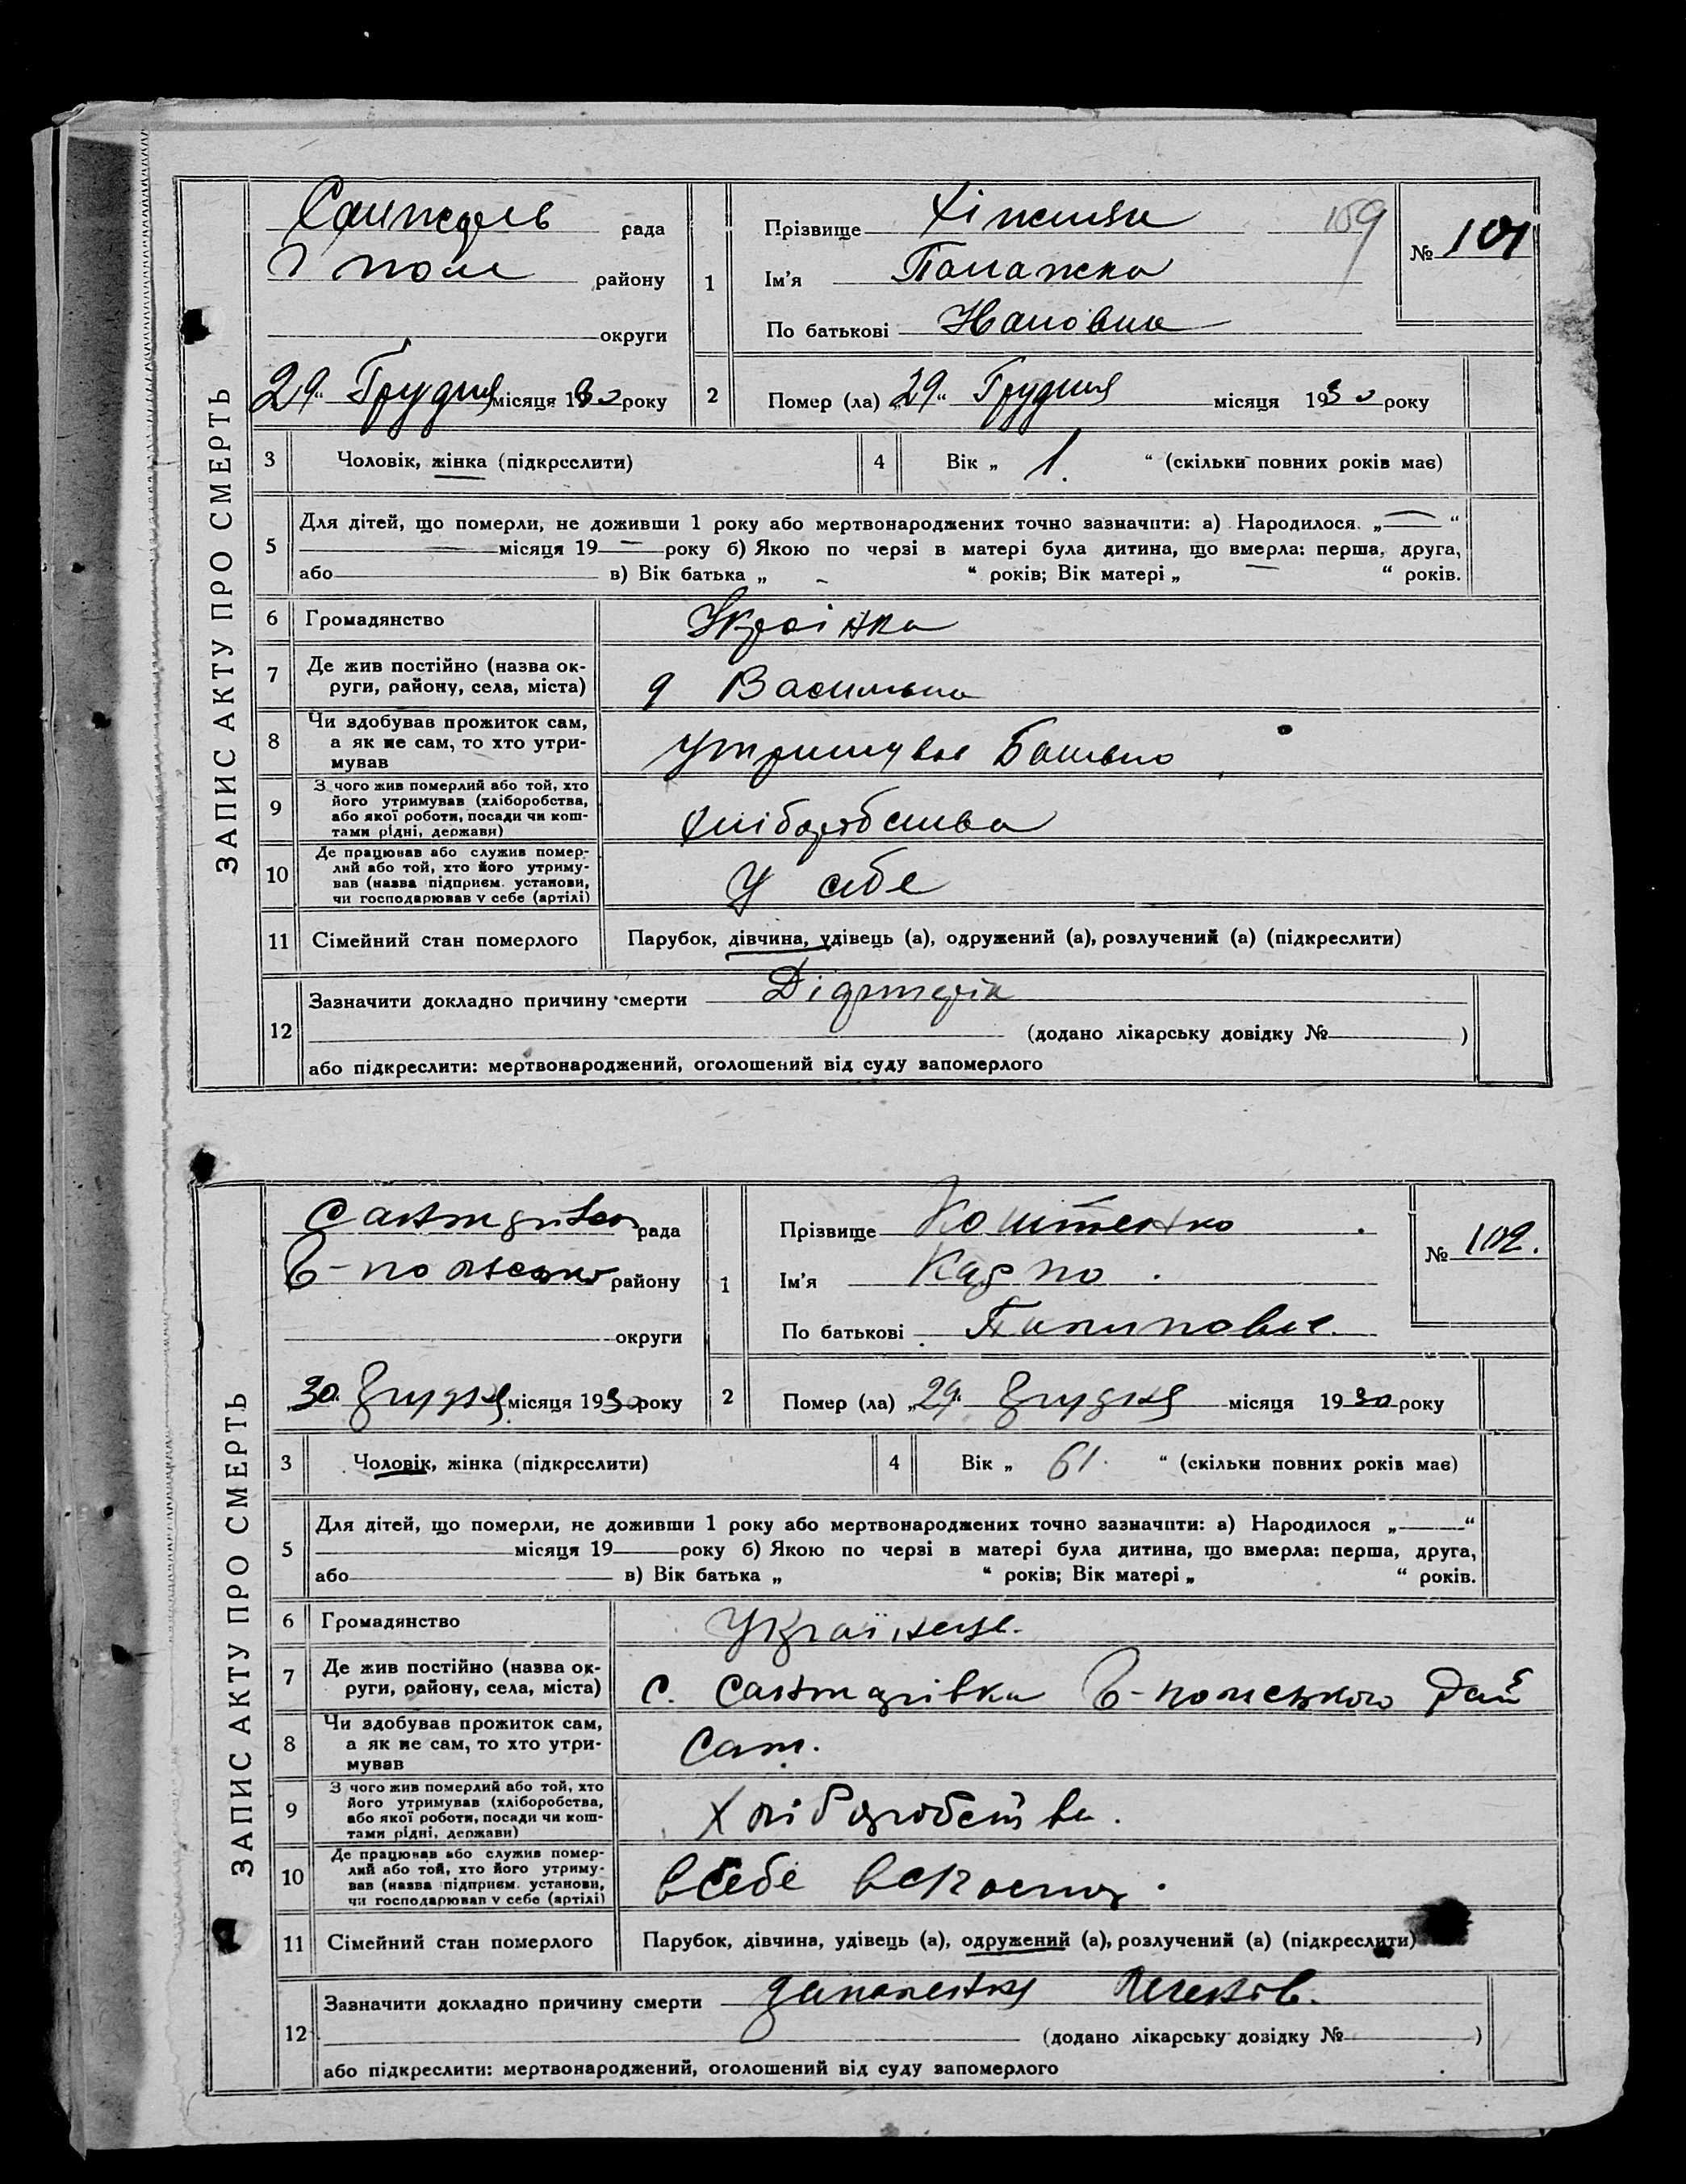 ЗАПИС АКТУ ПРО СМЕРТЬ
рада
району
округи
29 Грудня місяця 1930 року
1
Прізвище
159
Ім'я
По батькові
№ 101
2
Помер (ла) „29“ Грудня місяця 1930 року
3
Чоловік, жінка (підкреслити)
4
Вік „ 1. “ (скільки повних років має)
5
Для дітей, що померли, не доживши 1 року або мертвонароджених точно зазначити: а) Народилося „ — “
— місяця 19 — року б) Якою по черзі в матері була дитина, що вмерла: перша, друга,
або в) Вік батька „ - “ років; Вік матері „ — “ років.
6 Громадянство Украінка
7 Де жив постійно (назва ок-
руги, району, села, міста)
8 Чи здобував прожиток сам,
а як не сам, то хто утри-
мував
утримував Батько
9 З чого жив померлий або той, хто
його утримував (хліборобства,
або якої роботи, посади чи кош-
тами рідні, держави)
хліборобства
10 Де працював або служив помер-
лий або той, хто його утриму-
вав (назва підприєм. установи,
чи господарював у себе (артілі)
У себе
11 Сімейний стан померлого Парубок, дівчина, удівець (а), одружений (а), розлучений (а) (підкреслити)
12 Зазначити докладно причину смерти Діфтерія
(додано лікарську довідку № )
або підкреслити: мертвонароджений, оголошений від суду запомерлого
ЗАПИС АКТУ ПРО СМЕРТЬ
рада
району
округи
„30“ грудня місяця 1930 року
1
Прізвище
Ім'я Карпо.
По батькові
№ 102.
2
Помер (ла) „29“ грудня місяця 1930 року
3
Чоловік, жінка (підкреслити)
4
Вік „ 61. “ (скільки повних років має)
5
Для дітей, що померли, не доживши 1 року або мертвонароджених точно зазначити: а) Народилося „ “
місяця 19 року б) Якою по черзі в матері була дитина, що вмерла: перша, друга,
або в) Вік батька „ “ років; Вік матері „ “ років.
6 Громадянство Українец.
7 Де жив постійно (назва ок-
руги, району, села, міста)
с.
8 Чи здобував прожиток сам,
а як не сам, то хто утри-
мував
Сам.
9 З чого жив померлий або той, хто
його утримував (хліборобства,
або якої роботи, посади чи кош-
тами рідні, держави)
Хліборобства.
10 Де працював або служив помер-
лий або той, хто його утриму-
вав (назва підприєм. установи,
чи господарював у себе (артілі)
в себе
11 Сімейний стан померлого Парубок, дівчина, удівець (а), одружений (а), розлучений (а) (підкреслити)
12 Зазначити докладно причину смерти запалення легенів.
(додано лікарську довідку № )
або підкреслити: мертвонароджений, оголошений від суду запомерлого